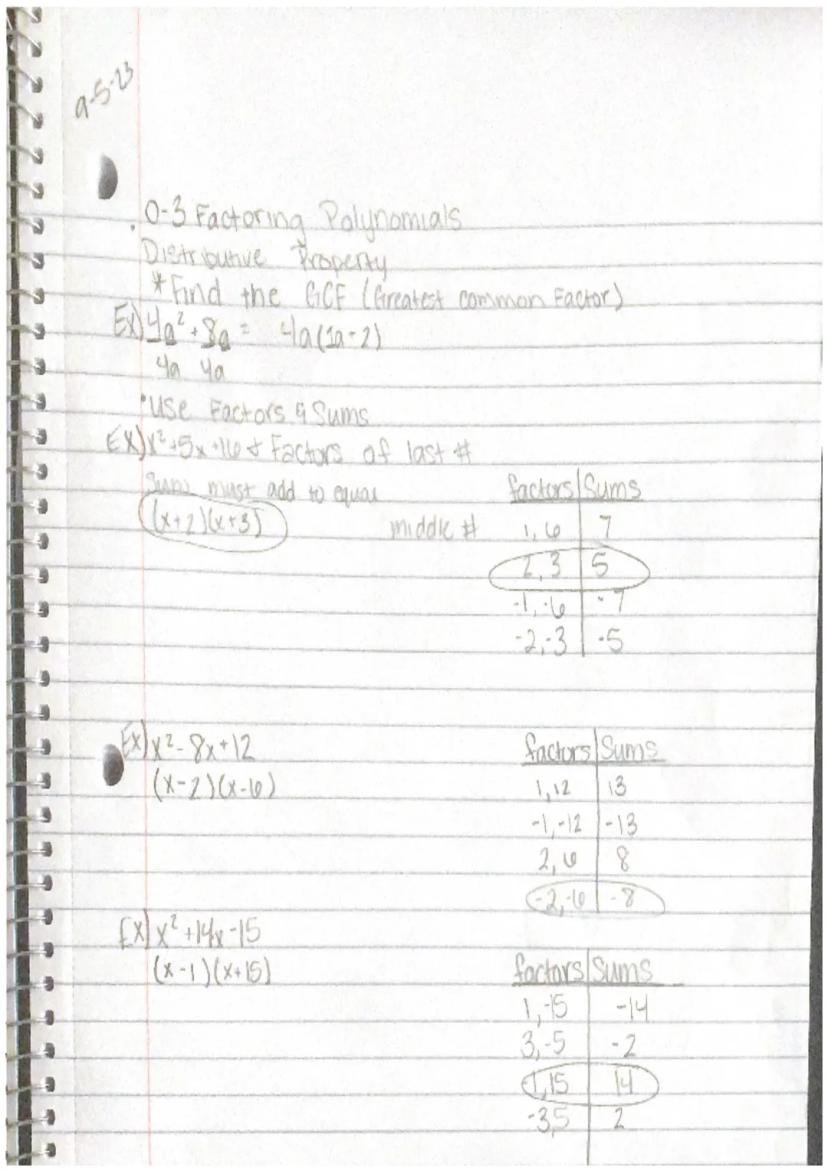 9-5-23
0-3 Factoring Polynomials
Distributive Property
*Find the GCF (Greatest common Factor)
Ex) 4a² + 8a = 4a(1a+2)
4a 4a
•Use Factors & Sums
Ex) x²+5x+6 & Factors of last #
Sums must add to equal
middle #
(x+2)(x+3)
factors | Sums
1,6 | 7
2,3 | 5
-1,-6 | -7
-2,-3 | -5
Ex) x²-8x+12
(x-2)(x-6)
factors | Sums
1,12 | 13
-1,-12 | -13
2,6 | 8
-2,-6 | -8
Ex) x²+14x-15
(x-1)(x+15)
factors | Sums
1,-15 | -14
3,-5 | -2
-1,15 | 14
-3,5 | 2